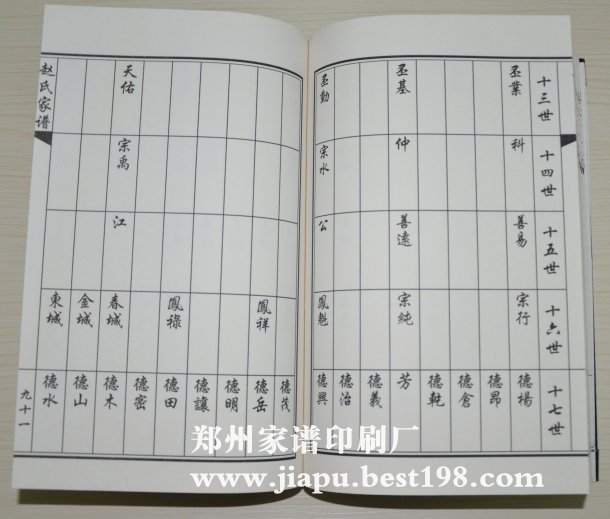 十三世
丕業
丕基
丕勳
十四世
科
仲
宗水
十五世
善易
善遠
公
十六世
宗行
宗純
鳳魁
十七世
德楊
德昂
德倉
德乾
芳
德義
德治
德興
天佑
宗禹
江
鳳祥
鳳祿
春城
金城
東城
德茂
德岳
德明
德讓
德田
德密
德木
德山
德水
赵氏家谱
九十一
郑州家谱印刷厂
www.jiapu.best198.com